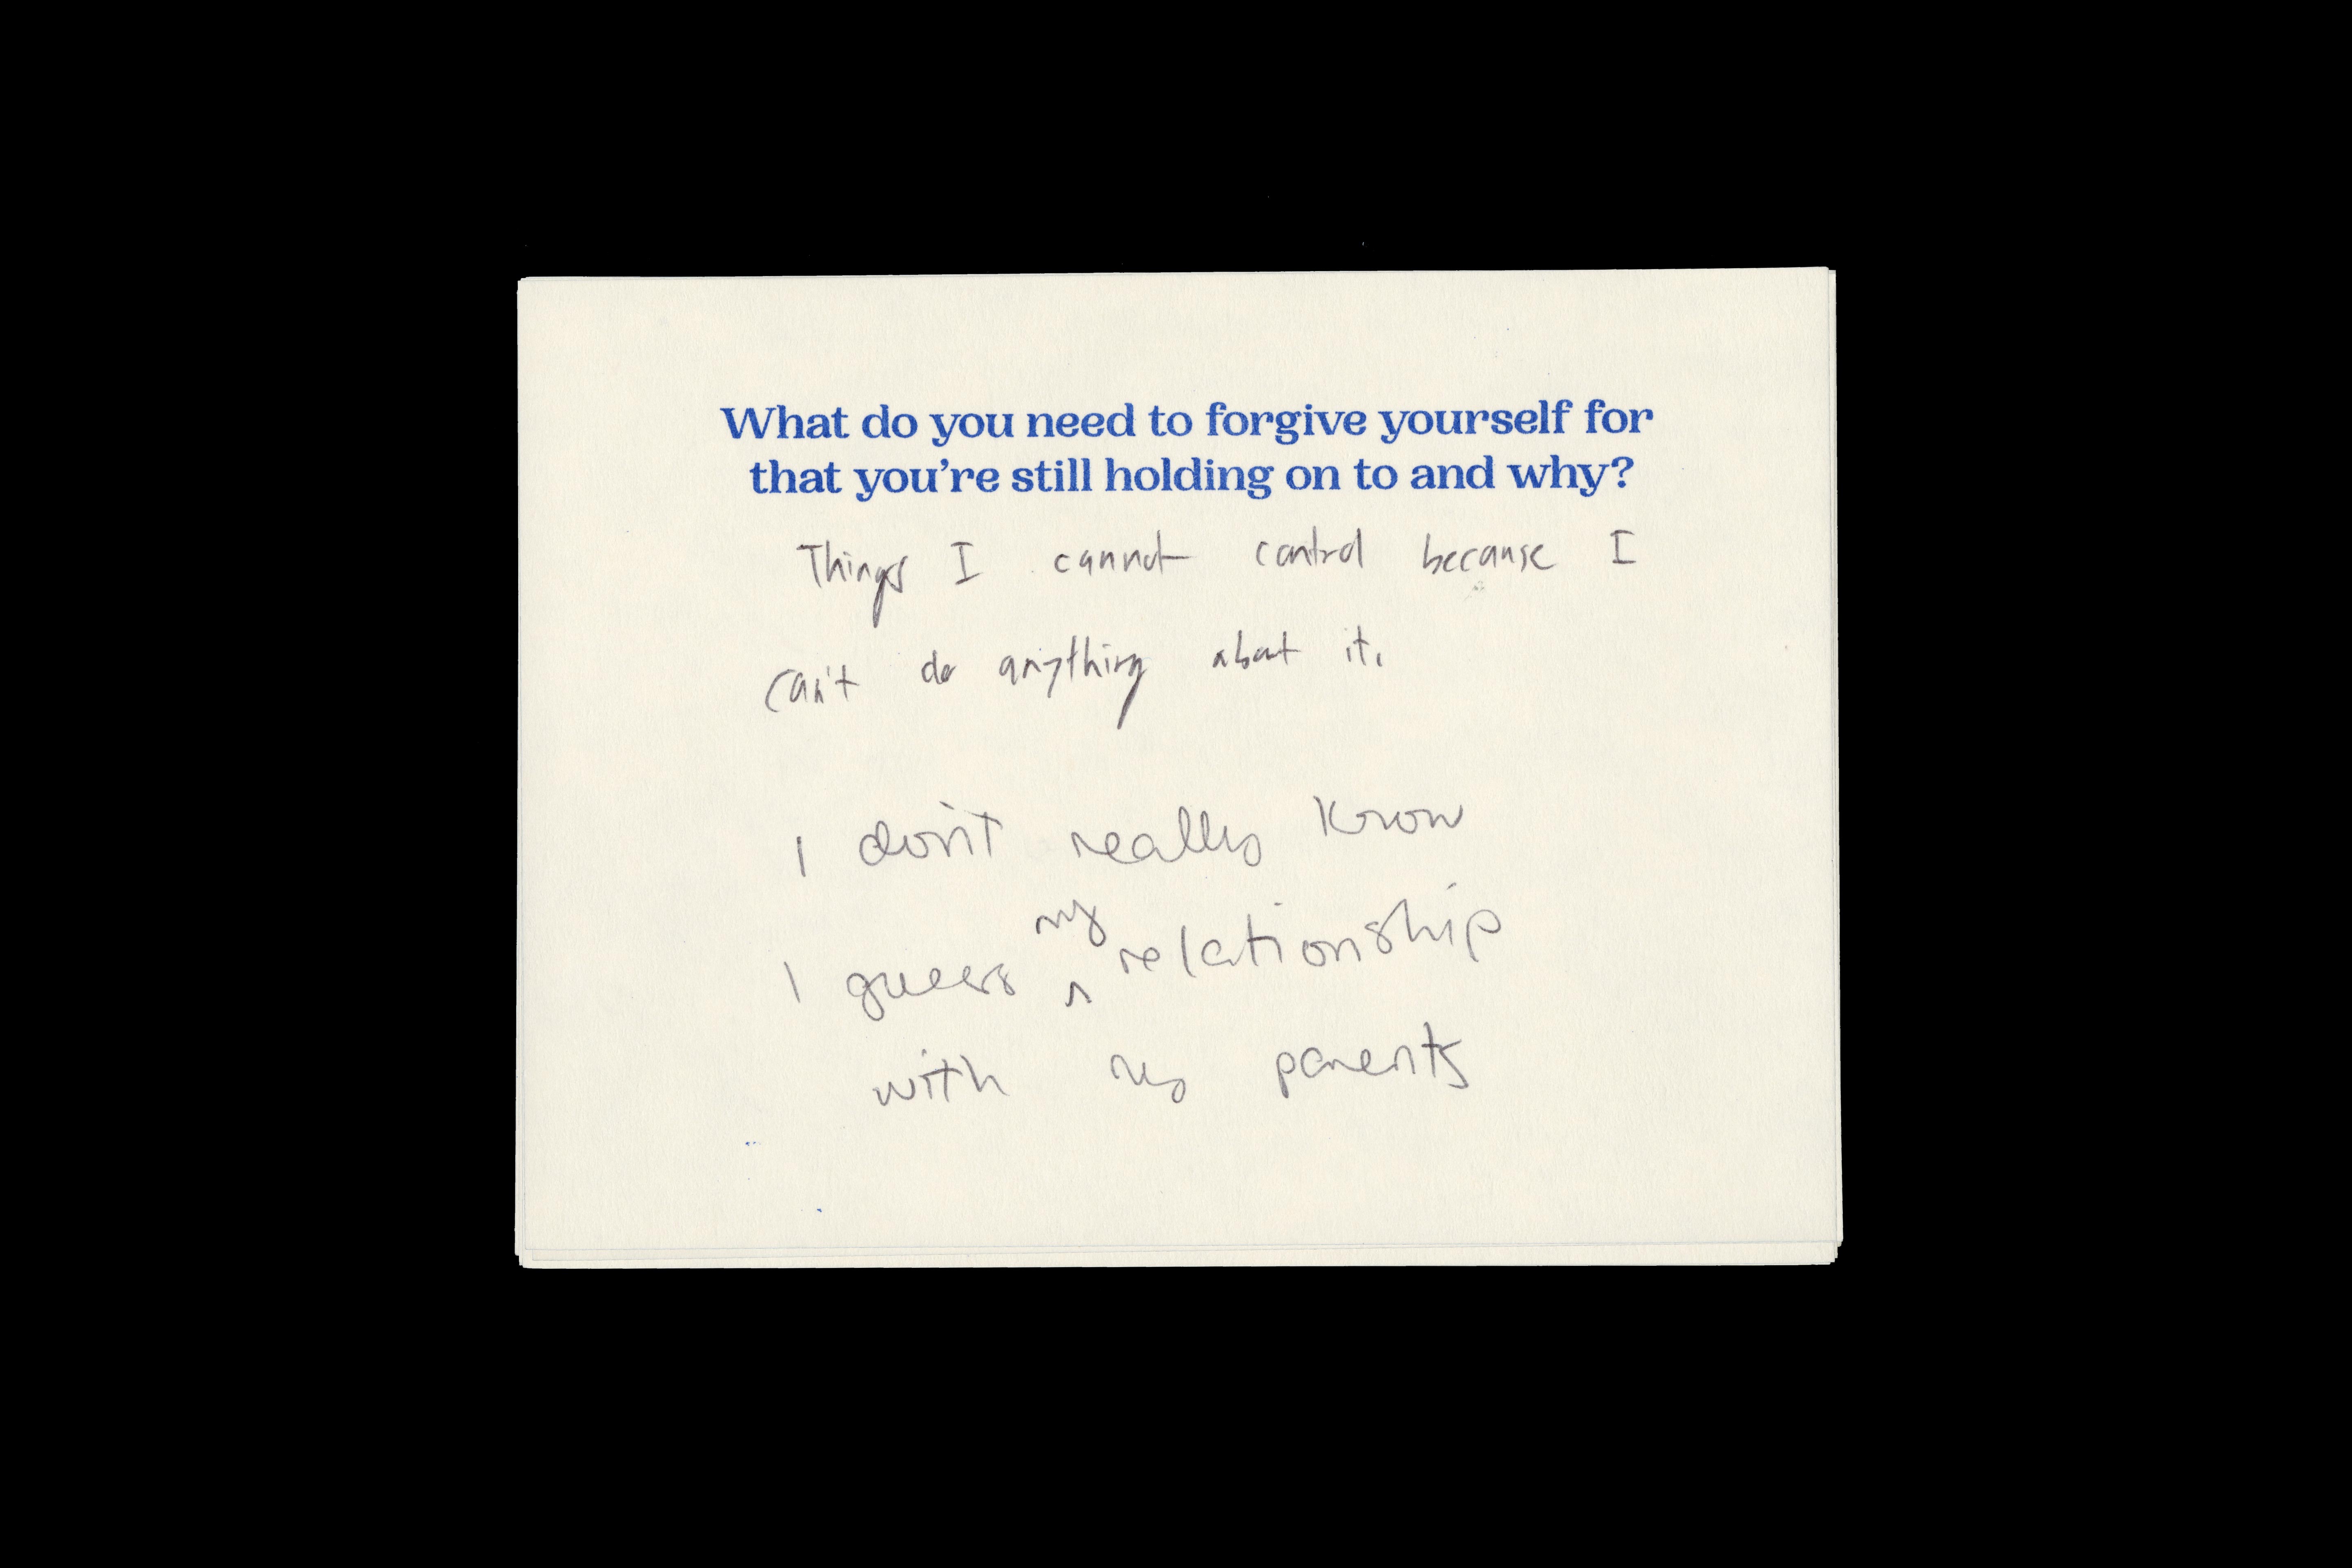 What do you need to forgive yourself for
that you're still holding on to and why?
Things I cannot control because I
can't do anything about it.
I don't really know
I guess my relationship
with my parents